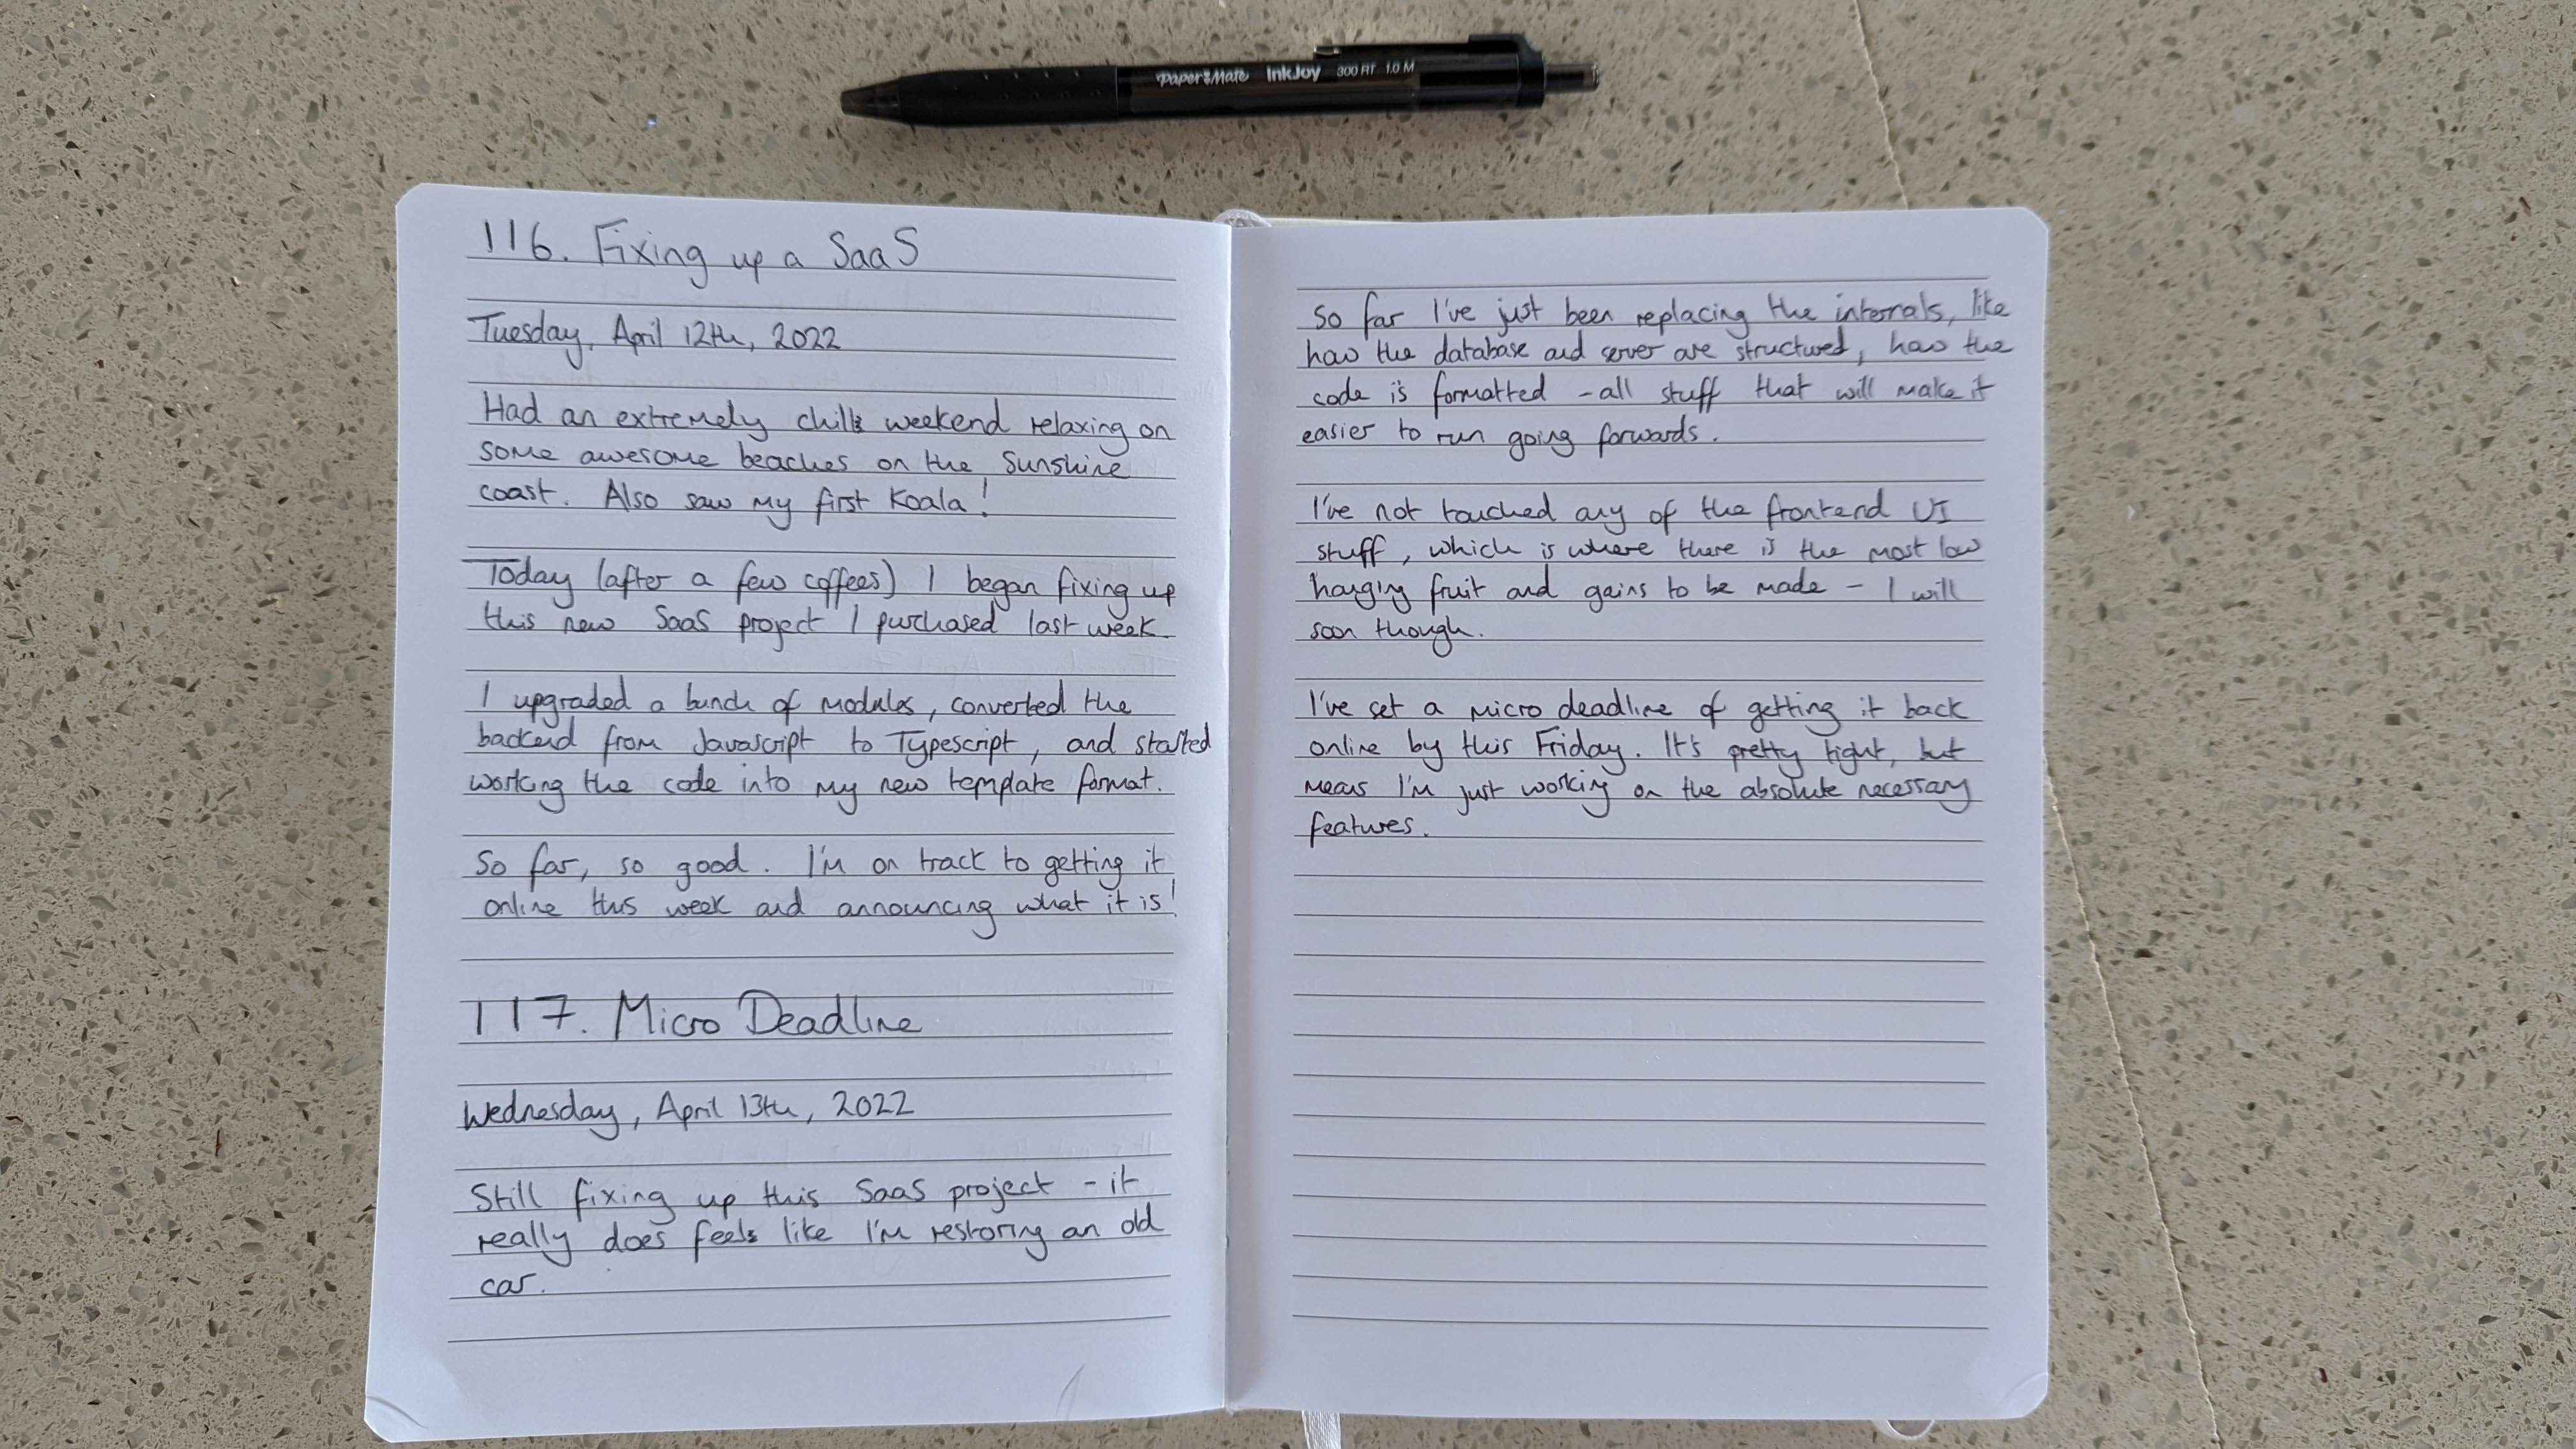 Paper Mate InkJoy 300 RT 1.0 M
116. Fixing up a SaaS
Tuesday, April 12th, 2022
Had an extremely chill weekend relaxing on
some awesome beaches on the Sunshine
coast. Also saw my first Koala!
Today (after a few coffees) I began fixing up
this new SaaS project I purchased last week.
I upgraded a bunch of modules, converted the
backend from Javascript to Typescript, and started
working the code into my new template format.
So far, so good. I'm on track to getting it
online this week and announcing what it is!
117. Micro Deadline
Wednesday, April 13th, 2022
Still fixing up this SaaS project - it
really does feels like I'm restoring an old
car.
So far I've just been replacing the internals, like
how the database and server are structured, how the
code is formatted - all stuff that will make it
easier to run going forwards.
I've not touched any of the frontend UI
stuff, which is where there is the most low
hanging fruit and gains to be made - I will
soon though.
I've set a micro deadline of getting it back
online by this Friday. It's pretty tight, but
means I'm just working on the absolute necessary
features.